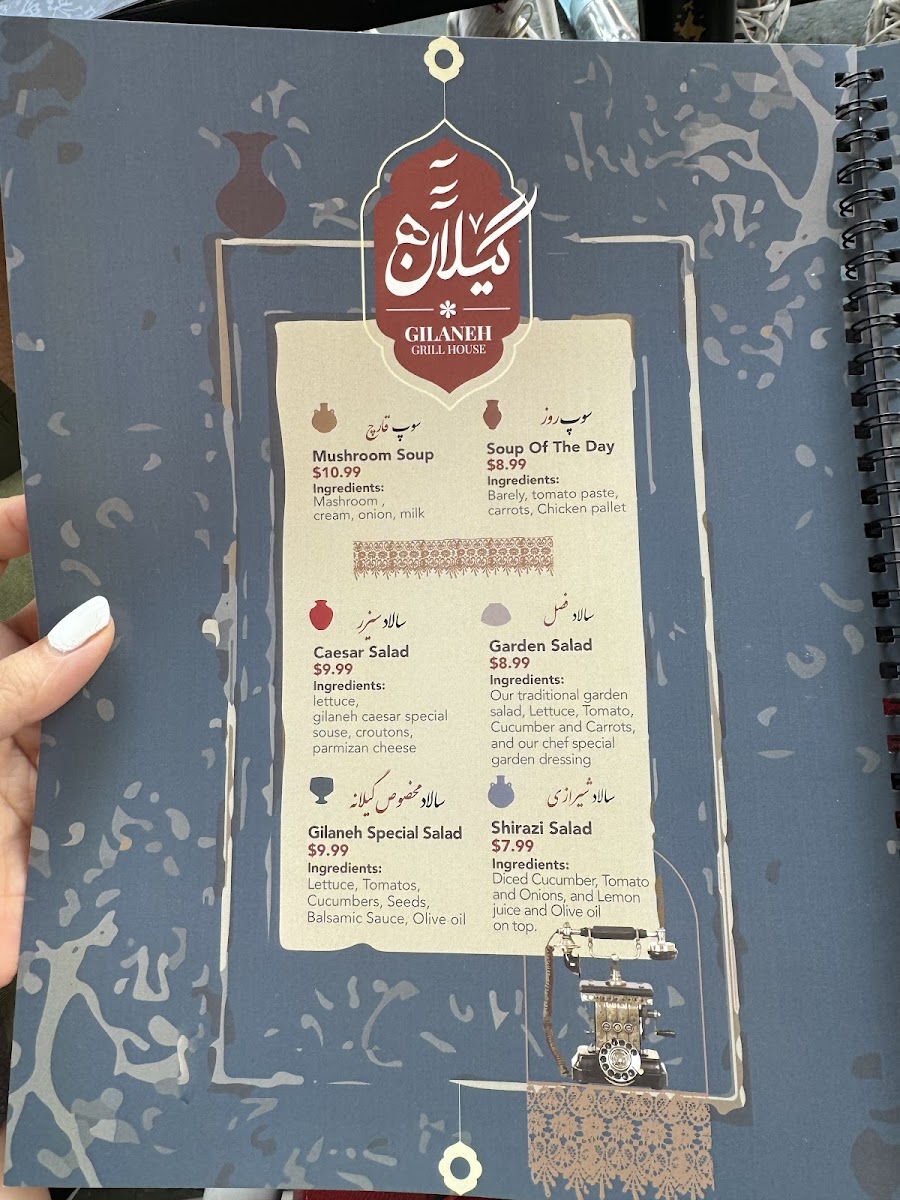 گیلانه
GILANEH
GRILL HOUSE
سوپ قارچ
Mushroom Soup
$10.99
Ingredients:
Mashroom ,
cream, onion, milk
سوپ روز
Soup Of The Day
$8.99
Ingredients:
Barely, tomato paste,
carrots, Chicken pallet
سالاد سزر
Caesar Salad
$9.99
Ingredients:
lettuce,
gilaneh caesar special
souse, croutons,
parmizan cheese
سالاد فصل
Garden Salad
$8.99
Ingredients:
Our traditional garden
salad, Lettuce, Tomato,
Cucumber and Carrots,
and our chef special
garden dressing
سالاد مخصوص گیلانه
Gilaneh Special Salad
$9.99
Ingredients:
Lettuce, Tomatos,
Cucumbers, Seeds,
Balsamic Sauce, Olive oil
سالاد شیرازی
Shirazi Salad
$7.99
Ingredients:
Diced Cucumber, Tomato
and Onions, and Lemon
juice and Olive oil
on top.